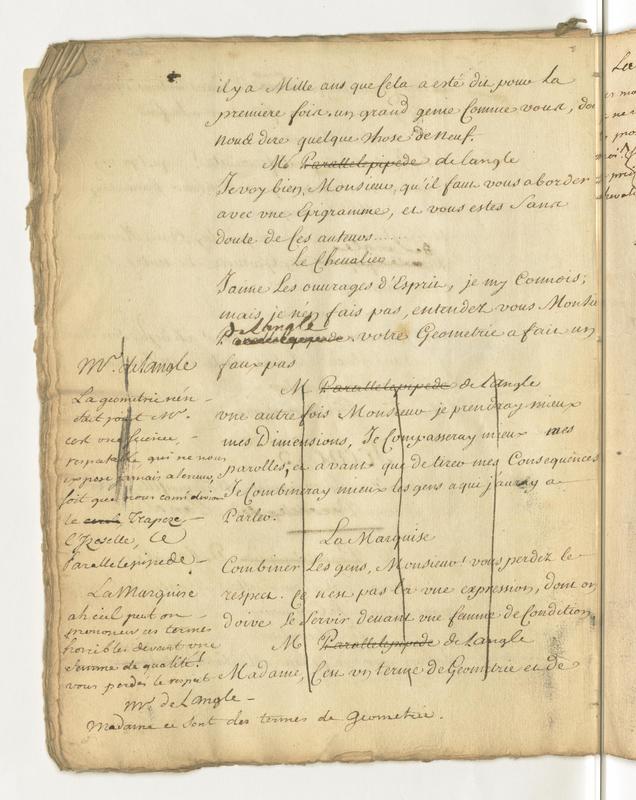 il y a Mille ans que Cela a esté dit pour La
premiere fois. un grand genie Comme vous, doi
nous dire quelque chose de neuf.
Mr Parallelepipede de Langle
Je voy bien, Monsieur, qu'il faut vous aborder
avec vne Epigramme, et vous estes Sans
doute de Ces auteurs......
le Chevalier
J'aime Les ouvrages d'Esprit, je my Connois;
mais je n'en fais pas, entendez vous Monsie
de Langle
Parallelepipede. votre Geometrie a fait un
faux pas
M Parallelepipede de Langle
vne autre fois Monsieur je prendray mieux
mes Dimensions, Je Compasseray mieux mes
parolles, et avant que de tirer mes Consequences
Je Combineray mieux les gens a qui j'auray a
Parler.
La Marquise
Combiner Les gens, Monsieur! vous perdez le
respect. Ce n'est pas là vne expression, dont on
doive se Servir devant vne femme de Condition
M Parallelepipede de Langle
Madame, C'est vn terme de Geometrie et de
Mr. de Langle
La geometrie n'en
fait point Mr.
cest une science,
respectable qui ne nous
expose jamais a l'erreur,
soit que nous considerions
le cercle Trapeze
L'Isoselle, Le
Parallelepipede
La Marquise
ah ciel peut on
prononcer ces termes
horribles devant une
femme de qualité!
vous perdés le respect
Mr. de Langle
Madame ce sont des termes de Geometrie.